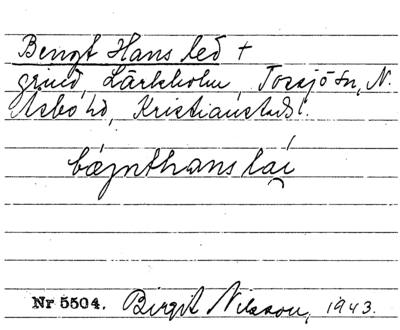 Bengt Hans led +
grind, Lärkholm, Tossjö sn, N.
Åsbo hd, Kristianstads l.
bǽŋnthans lai
Nr 5504. Birgit Nilsson, 1943.